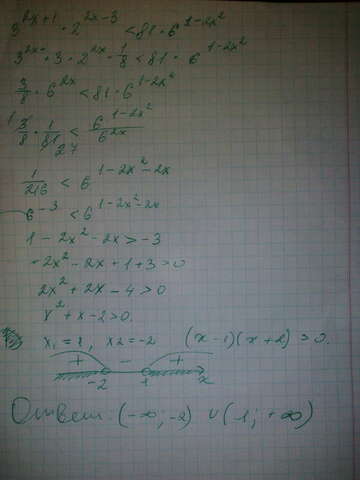 3^{2x+1} · 2^{2x-3} < 81 · 6^{1-2x^2}
3^{2x} · 3 · 2^{2x} · \frac{1}{8} < 81 · 6^{1-2x^2}
\frac{3}{8} · 6^{2x} < 81 · 6^{1-2x^2}
\frac{3}{8} · \frac{1}{81} < \frac{6^{1-2x^2}}{6^{2x}}
1 27
\frac{1}{216} < 6^{1-2x^2-2x}
6^{-3} < 6^{1-2x^2-2x}
1 - 2x^2 - 2x > -3
-2x^2 - 2x + 1 + 3 > 0
2x^2 + 2x - 4 > 0
x^2 + x - 2 > 0.
x_1 = 1, x_2 = -2 (x-1)(x+2) > 0.
+ - +
-2 1 x
Ответ: (-∞; -2) ∪ (1; +∞)